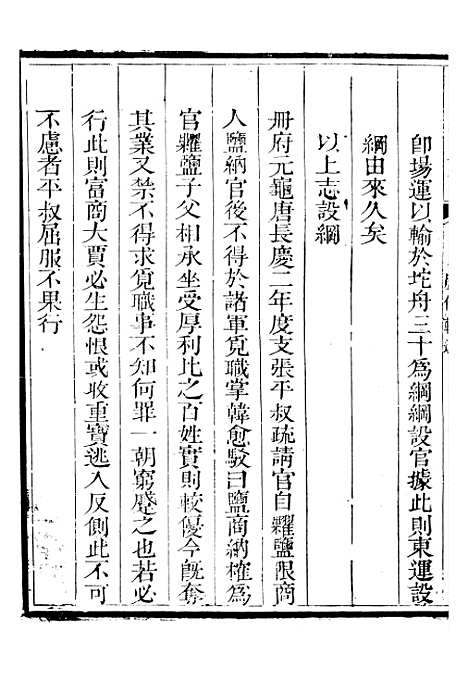 卽場運以輸於垞舟三十爲綱綱設官據此則東運設
綱由來久矣
以上志設綱
册府元龜唐長慶二年度支張平叔疏請官自糶鹽限商
人鹽納官後不得於諸軍覓職掌韓愈駁曰鹽商納榷爲
官糶鹽子父相承坐受厚利比之百姓實則較優今旣奪
其業又禁不得求覓職事不知何罪一朝窮蹙之也若必
行此則富商大賈必生怨恨或收重寶逃入反側此不可
不慮者平叔屈服不果行